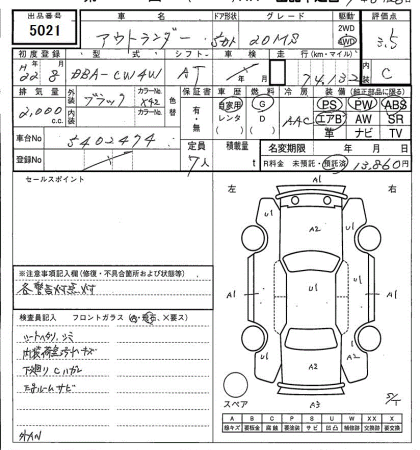 出品番号 車名 ドア形状 グレード 駆動 評価点
5021 アウトランダー 5ドア 20MS 2WD 4WD 3.5
初度登録 型式 シフト 車検 走行(km・マイル) 内装
H22年8月 DBA-CW4W AT 年 月 74,132 C
排気量 外装 カラーNo. 色替 保証書 車歴 燃料 冷房 装備(純正部品に限る)
2,000 c.c. ブラック X42 有・無 自家用 G AAC PS PW ABS
内装 カラーNo. レンタ D エアB AW SR
( ) ( ) 革 ナビ TV
車台No 5402474 定員 積載量 名変期限 年 月 日
登録No 7人 t R料金 未預託・預託済 13,860円
セールスポイント
左 右
A1
U1 A2 U1
A1 U1 U1 A1
A2
A2
U1 U1
A3
スペア
S/T
※注意事項記入欄(修復・不具合箇所および状態等)
各警告灯点灯
検査員記入 フロントガラス(A・飛石、×要ス)
シートヘタリ、シミ
内装荷室汚れキズ
下廻りCハガレ
下廻ルームサビ
A B C P S U W X XX
線キズ 要板金 腐蝕 要塗装 サビ 凹凸 補修跡 交換跡 要交換